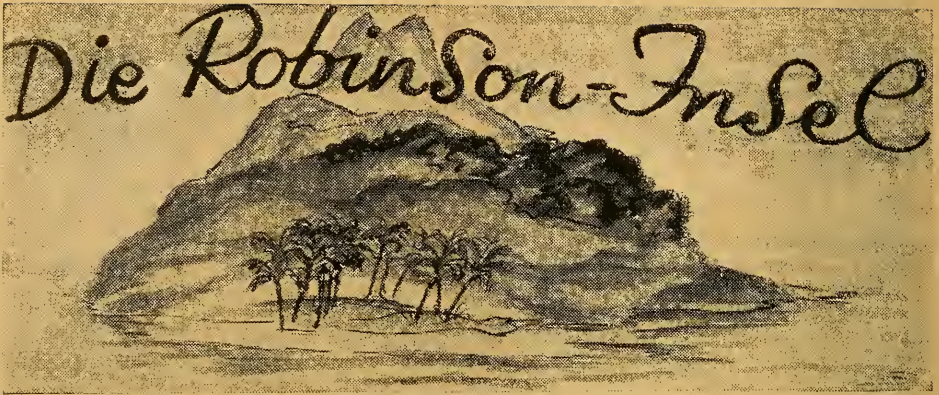 Die Robinson-Insel